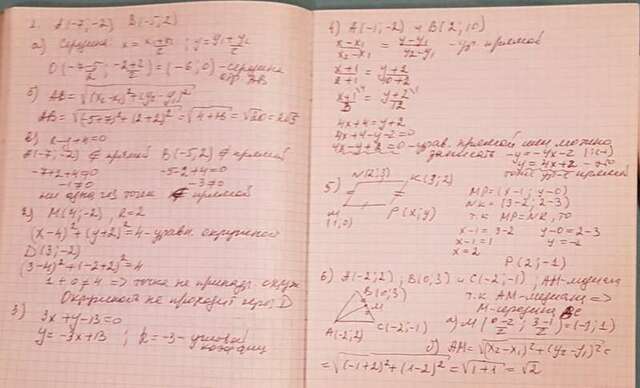 1. A(-7;-2) B(-5;2)
а) Середина x = (x₁+x₂)/2 ; y = (y₁+y₂)/2
O((-7-5)/2 ; (-2+2)/2) = (-6; 0) - середина отр. AB
б) AB = √((x₂-x₁)²+(y₂-y₁)²)
AB = √((-5+7)²+(2+2)²) = √(4+16) = √20 = 2√5
в) x-y+4=0
A(-7;-2) ∉ прямой B(-5;2) ∉ прямой
-7+2+4≠0 -5-2+4=0
-1≠0 -3≠0
ни одна из точек ∉ прямой
2) M(4;-2), R=2
(x-4)²+(y+2)²=4 - уравн. окружности
D(3;-2)
(3-4)²+(-2+2)²=4
1+0≠4 => точка не принадл. окруж.
Окружность не проходит через D
3) 3x+y-13=0
y=-3x+13 ; k=-3 - угловой
4) A(-1;-2) и B(2;10)
(x-x₁)/(x₂-x₁) = (y-y₁)/(y₂-y₁) - ур. прямой
(x+1)/(2+1) = (y+2)/(10+2)
(x+1)/3 = (y+2)/12
4x+4=y+2
4x+4-y-2=0
4x-y+2=0 - уравн. прямой или можно
записать -y=-4x-2
y=4x+2 -
тоже прямой
5) N(2;3) K(3;2)
M (1;0) P(x;y)
MP=(x-1; y-0)
NK=(3-2; 2-3)
т.к MP=NK, то
x-1=3-2 y-0=2-3
x-1=1 y=-1
x=2
P(2;-1)
6) A(-2;2), B(0;3) и C(-2;-1), AM-медиана
B(0;3)
M
A(-2;2) C(-2;-1)
т.к AM-медиана =>
M-середина BC
а) M((0-2)/2; (3-1)/2) = (-1; 1)
б) AM = √((x₂-x₁)²+(y₂-y₁)²) =
= √((-1+2)²+(1-2)²) = √(1+1) = √2